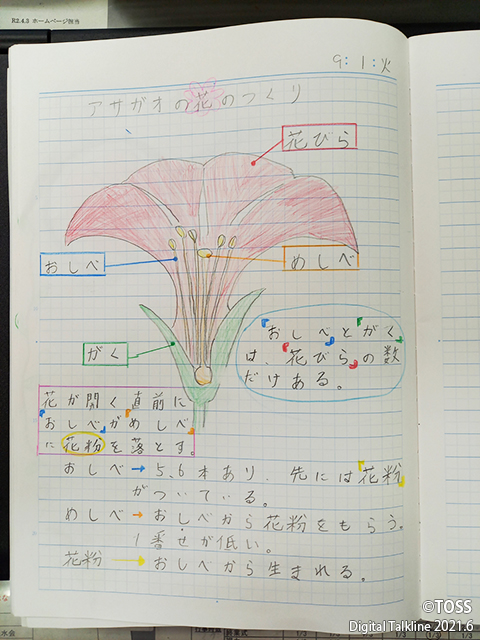 R2.4.3 ホームページ担当
9:1:火
アサガオの花のつくり
花びら
おしべ
めしべ
がく
「おしべ」と「がく」
は、「花びら」の数
だけある。
花が開く直前に
「おしべ」が「めしべ」
に花粉を落とす。
おしべ→5、6本あり、先には「花粉」
がついている。
めしべ→おしべから花粉をもらう。
1番せが低い。
花粉→おしべから生まれる。
©TOSS
Digital Talkline 2021.6